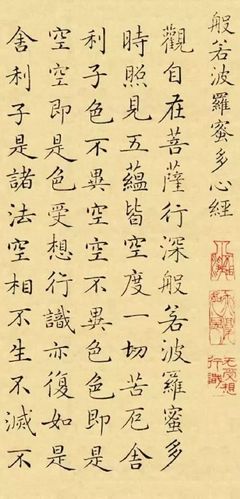 般若波羅蜜多心經
觀自在菩薩行深般若波羅蜜多
時照見五蘊皆空度一切苦厄舍
利子色不異空空不異色色即是
空空即是色受想行識亦復如是
舍利子是諸法空相不生不滅不